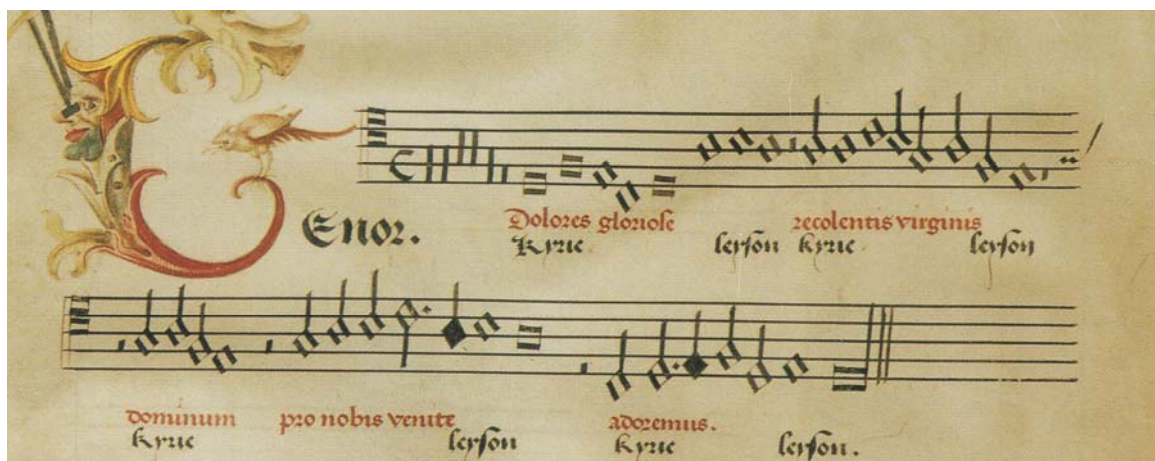 TEnor.
Dolores gloriose recolentis virginis
kyrie leyson kyrie leyson
dominum pro nobis venite adoremus.
kyrie leyson kyrie leyson.